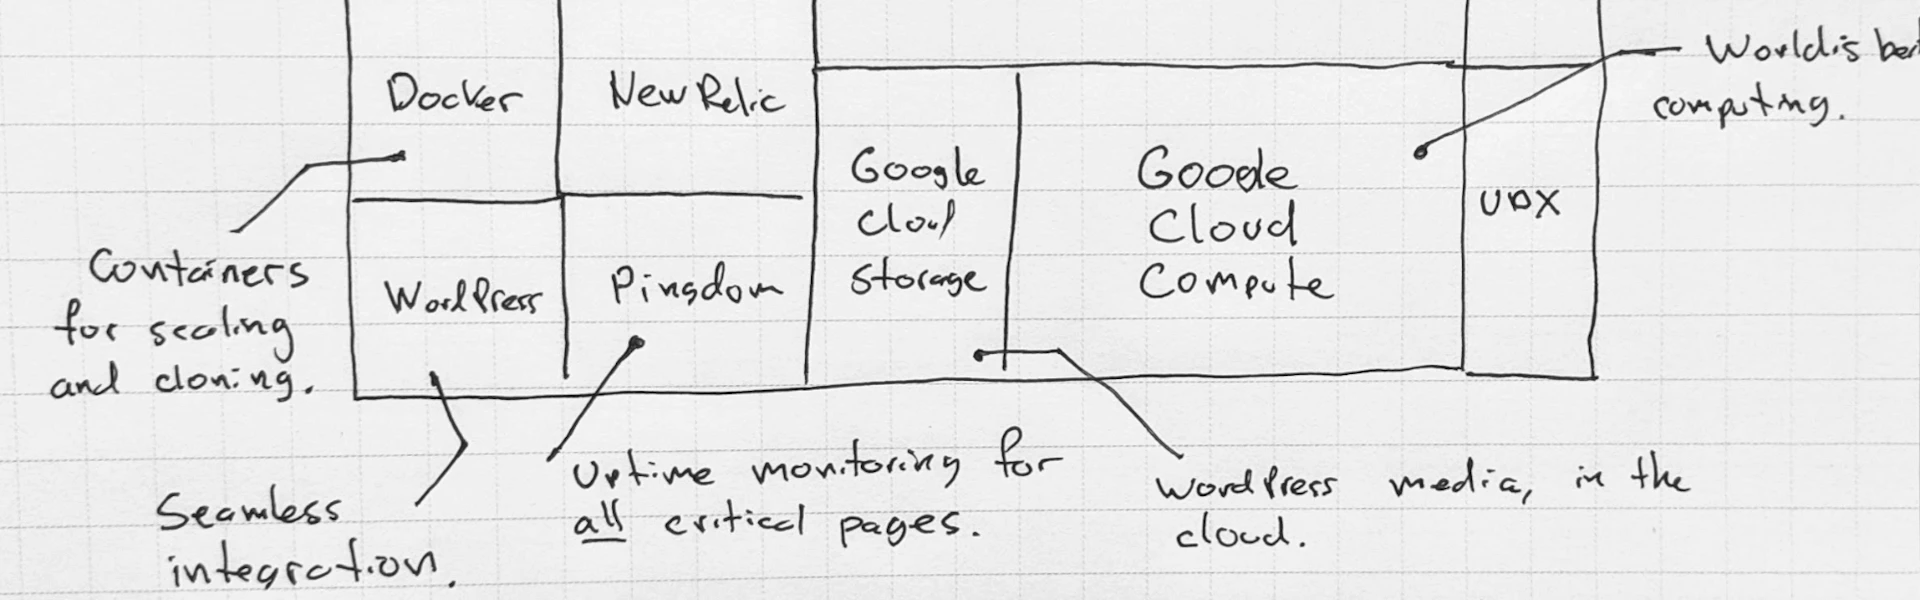 Docker
New Relic
Google
Cloud
Storage
Google
Cloud
Compute
UDX
World's
computing.
WordPress
Pingdom
Containers
for scaling
and cloning.
Seamless
integration.
Uptime monitoring for
all critical pages.
WordPress media, in the
cloud.